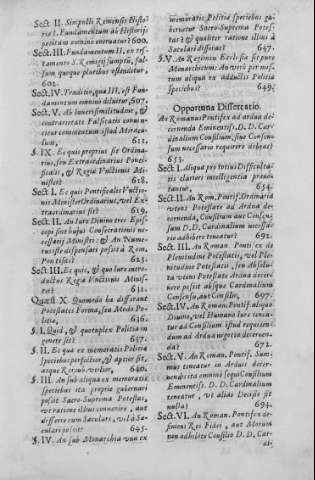 Sect II. Simpliſſi Remenſis Hiſto-
riæ I. Fundamentum ab Hiſtorijs
petitum omninò eneruatur? 600.
Sect. III. Fundamentum II. ex teſ-
tamento S. Remigij ſumptũ, ful-
ſum quoque pluribus oſtenditur,
602.
Sect. IV. Traditio, quæ III. eſt Fun-
damentum omninò diluitur, 607.
Sect. V. Ab inveriſimilitudine, &
contrarietate Falſitatis conuin-
citur commentum iſtud Miracu-
lum, 611.
§. IX. Ec quis proprius ſit Ordina-
rius, ſeu Extraordinarius Ponti-
ficalis, & Regiæ Vnctionis Mi-
niſter? 618.
Sect I. Ec quis Pontificalis Vnctio-
nis Miniſter Ordinarius, vel Ex-
traordinarius ſit? 619.
Sect. II. An Iure Diuino tres Epiſ-
copi ſint huius Conſecrationis ne-
ceſſarij Miniſtri: & An Nume-
rus iſte diſpenſari poſſit à Rom.
Pontifice? 623.
Sect. III. Ec quis, & quo iure intro-
ductus Regiæ Vnctionis Miniſ-
ter? 632.
Quæſt X. Quomodo ha differant
Poteſtates Forma, ſeu Modo Po-
litiæ, 636.
§. I. Quid, & quotuplex Politia in
genere ſit? 637.
§. II. Ec quæ ex memoratis Politiæ
ſpeciebus perfectior, & aptior ſit,
atque Reipub. vtilior, 640.
§. III. An ſub aliqua ex memoratis
ſpeciebus ita propria gubernari
poſſit Sacro-Suprema Poteſtas,
vt ratione illius conuenire, aut
differre cum Sacerdotis, vel à Sæ-
culari poſſit? 645.
§. IV. An ſub Monarchia vna ex
memoratis Politiæ ſpeciebus gu-
bernetur Sacro-Suprema Poteſ-
tas? & qualiter ratione illius à
Sæculari diſſitat? 647.
§. V. An Regimen Eccleſiæ ſit pure
Monarchicum: An verò per miſ-
tum aliqua ex adductis Politiæ
ſpeciebus? 649.
Opportuna Diſſertatio.
An Romanus Pontifex ad ardua de-
cernenda Eminentiſſ. D. D. Car-
dinalium Conſilium, ſiue Conſen-
ſum neceſſario requirere debeat?
653.
Sect I. Aliqua pro totius Difficulta-
tis clariori intelligentia prænot-
antur, 654.
Sect. II. An Rom. Pontif. Ordinaria
vtens Poteſtate ad Ardua de-
cernenda, Conſilium aut Conſen-
ſum D. D. Cardinalium neceſſa-
rio adhibere teneatur? 692.
Sect. III. An Roman. Pontifex de
Plenitudine Poteſtatis, vel Ple-
nitudine Poteſtatis, ſeu Abſolu-
ta vtens Poteſtate Ardua decer-
nere poſſit abſque Cardinalium
Conſenſu, aut Conſilio, 697.
Sect. IV. An Roman. Pontif. aliquo
Diuino, vel Humano Iure tenea-
tur ad Conſilium iſtud requiren-
dum ad Ardua negotia decernen-
da? 672.
Sect. V. An Roman. Pontif. Sum-
mus teneatur in Arduis decer-
nendis ita omninò ſequi Conſilium
Eminentiſſ. D. D. Cardinalium
teneatur, vt alias Deciſio ſit
nulla? 694.
Sect. VI. An Roman. Pontifex de-
finiens Res Fidei, aut Morum
non adhibito Conſilio D. D. Car-
di-